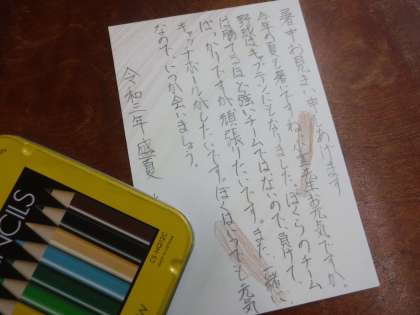 暑中お見まい申しあげます
今年の夏も暑いですね。小 先生お元気ですか。
野球はキャプテンにもなりました。ぼくらのチーム
は勝てるほど強いチームではないので、負けて
ばっかりですが頑張りたいです。また一緒に
キャッチボールがしたいです。ぼくはいつでも元気
なので、いつか会いましょう。
令和三年 盛夏
NCILS